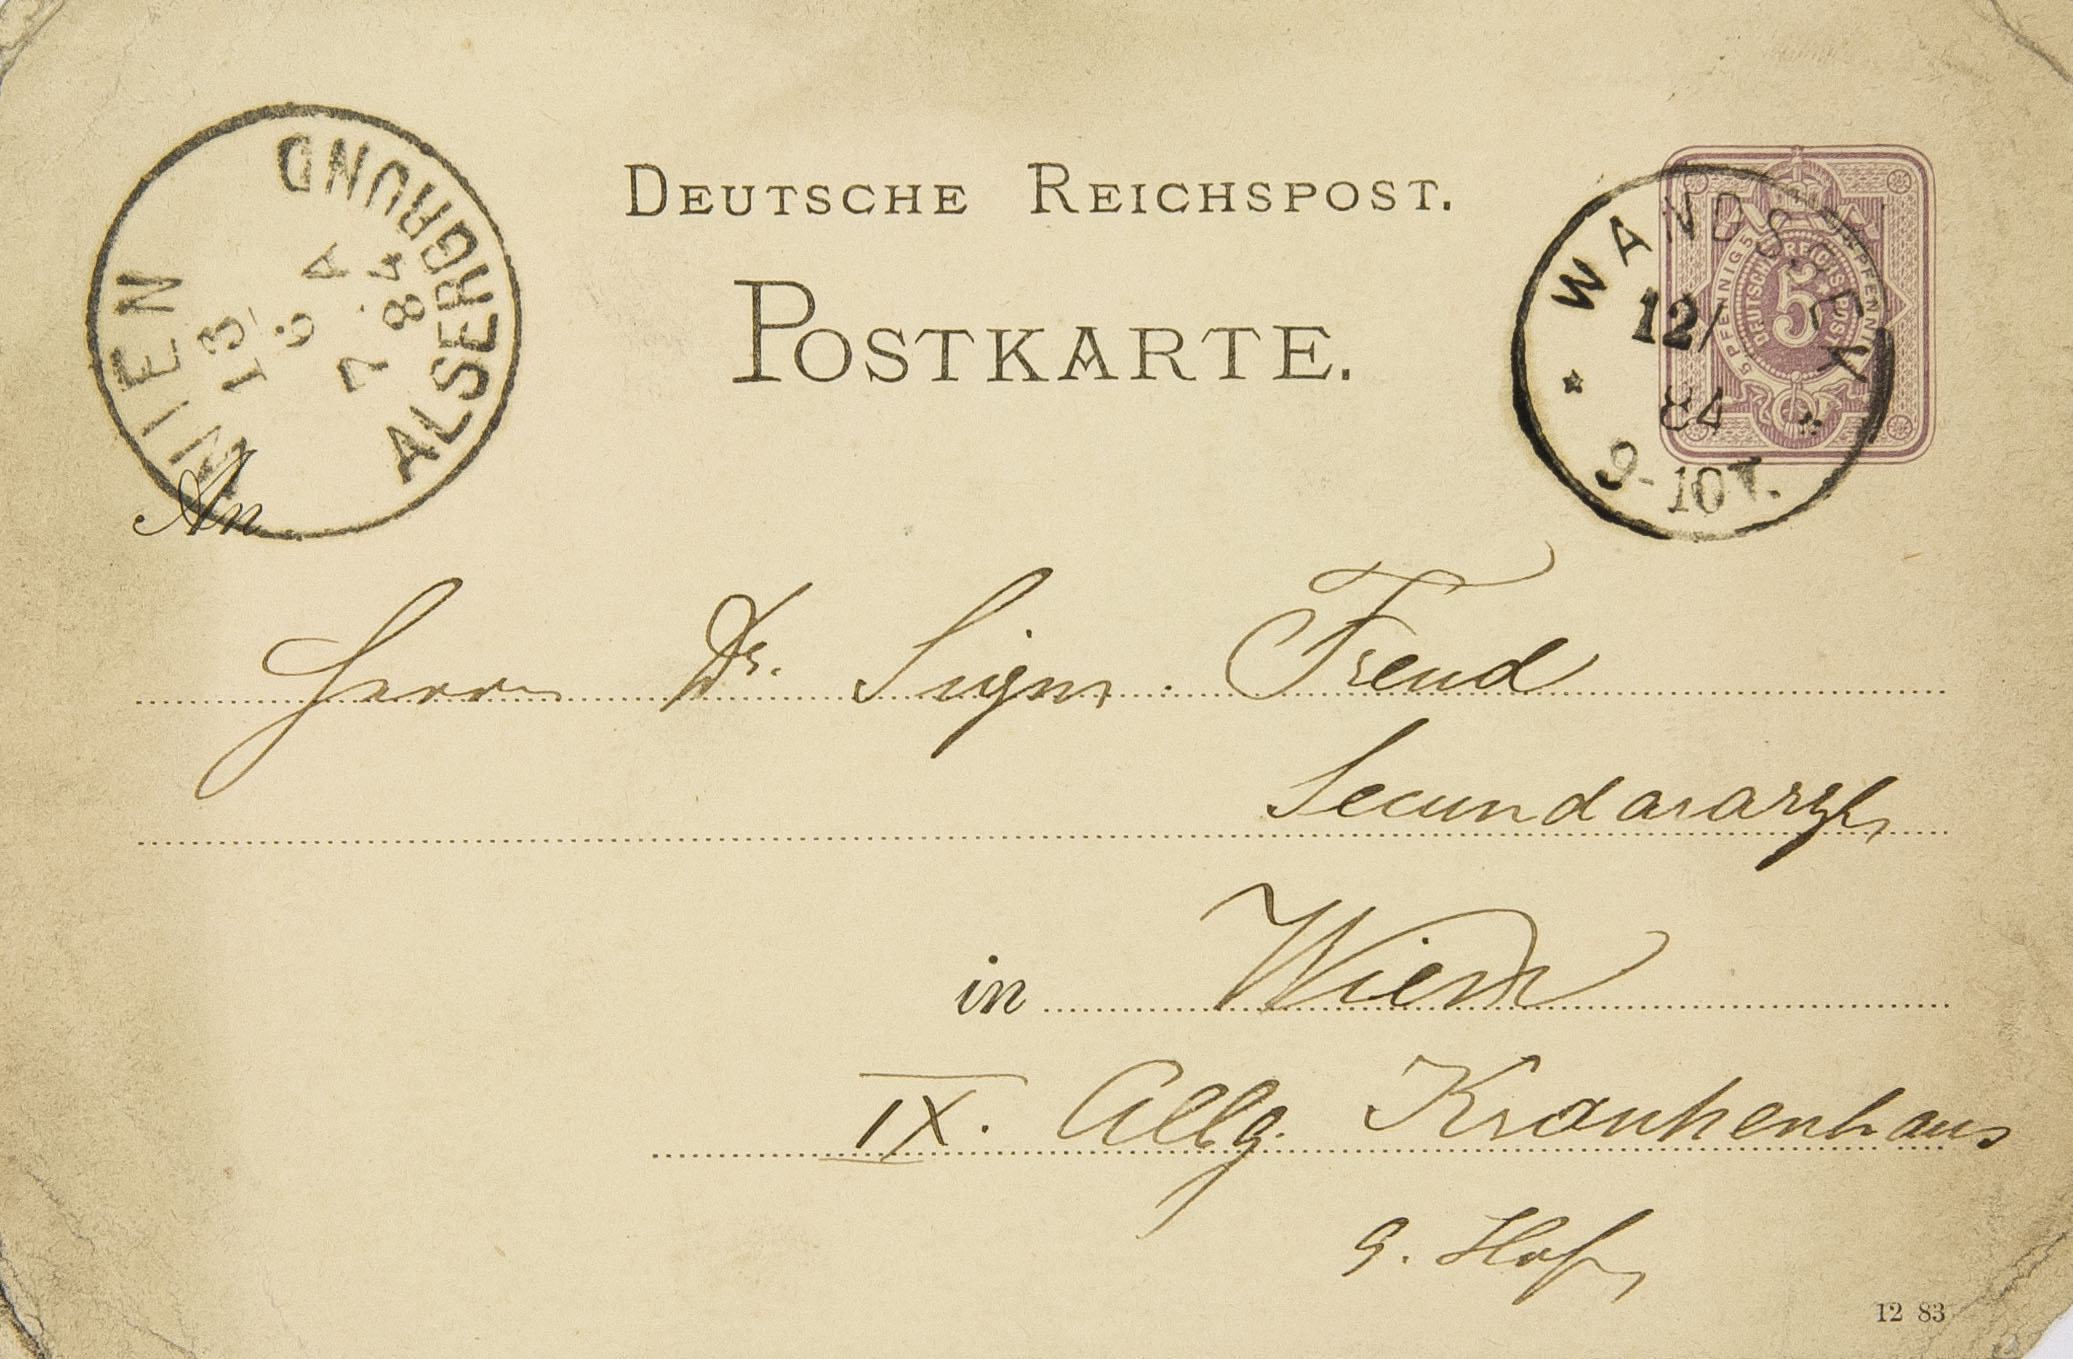 DEUTSCHE REICHSPOST.
POSTKARTE.
WIEN
ALSERGRUND
13
6 A
7 84
WANDSBEK
12/
84
9-10
5 PFENNIG 5 PFENNIG
DEUTSCHE REICHSPOST
5
An
Herrn Dr. Sigm. Freud
Secundararzt
in Wien
IX. Allg. Krankenhaus
9. Hof
12 83